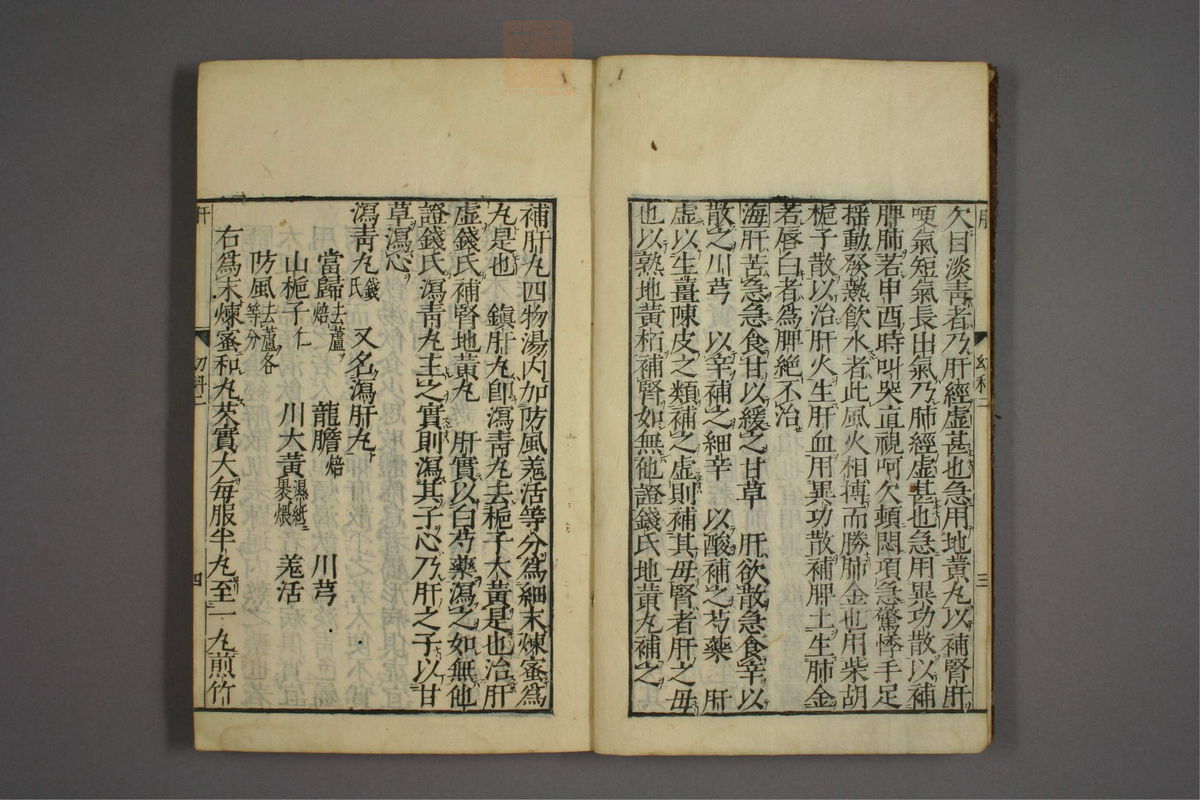 欠目淡青者乃肝經虛甚也急用地黃丸以補腎肝
哽氣短氣長出氣乃肺經虛甚也急用異功散以補
脾肺若申酉時叫哭直視呵欠頓悶項急驚悸手足
揺動發熱飲水者此風火相搏而勝肺金也用柴胡
梔子散以治肝火生肝血用異功散補脾土生肺金
若唇白者為脾絶不治
海肝苦急急食甘以緩之甘草　肝欲散急食辛以
散之川芎　以辛補之細辛　以酸補之芍藥　肝
虛以生薑陳皮之類補之虛則補其母腎者肝之母
也以熟地黃栢補腎如無他證錢氏地黃丸補之
三
補肝丸四物湯内加防風羗活等分為細末煉蜜為
丸是也　鎮肝丸即瀉青丸去梔子大黃是也治肝
虛錢氏補腎地黃丸　肝實以白芍藥瀉之如無他
證錢氏瀉青丸主之實則瀉其子心乃肝之子以甘
草瀉心
瀉青丸錢氏　又名瀉肝丸
當歸去蘆焙　龍膽焙　川芎
山梔子仁　川大黃濕紙裹煨　羗活
防風去蘆各等分
右為末煉蜜和丸芡實大每服半丸至一丸煎竹
肝
幼科二
四